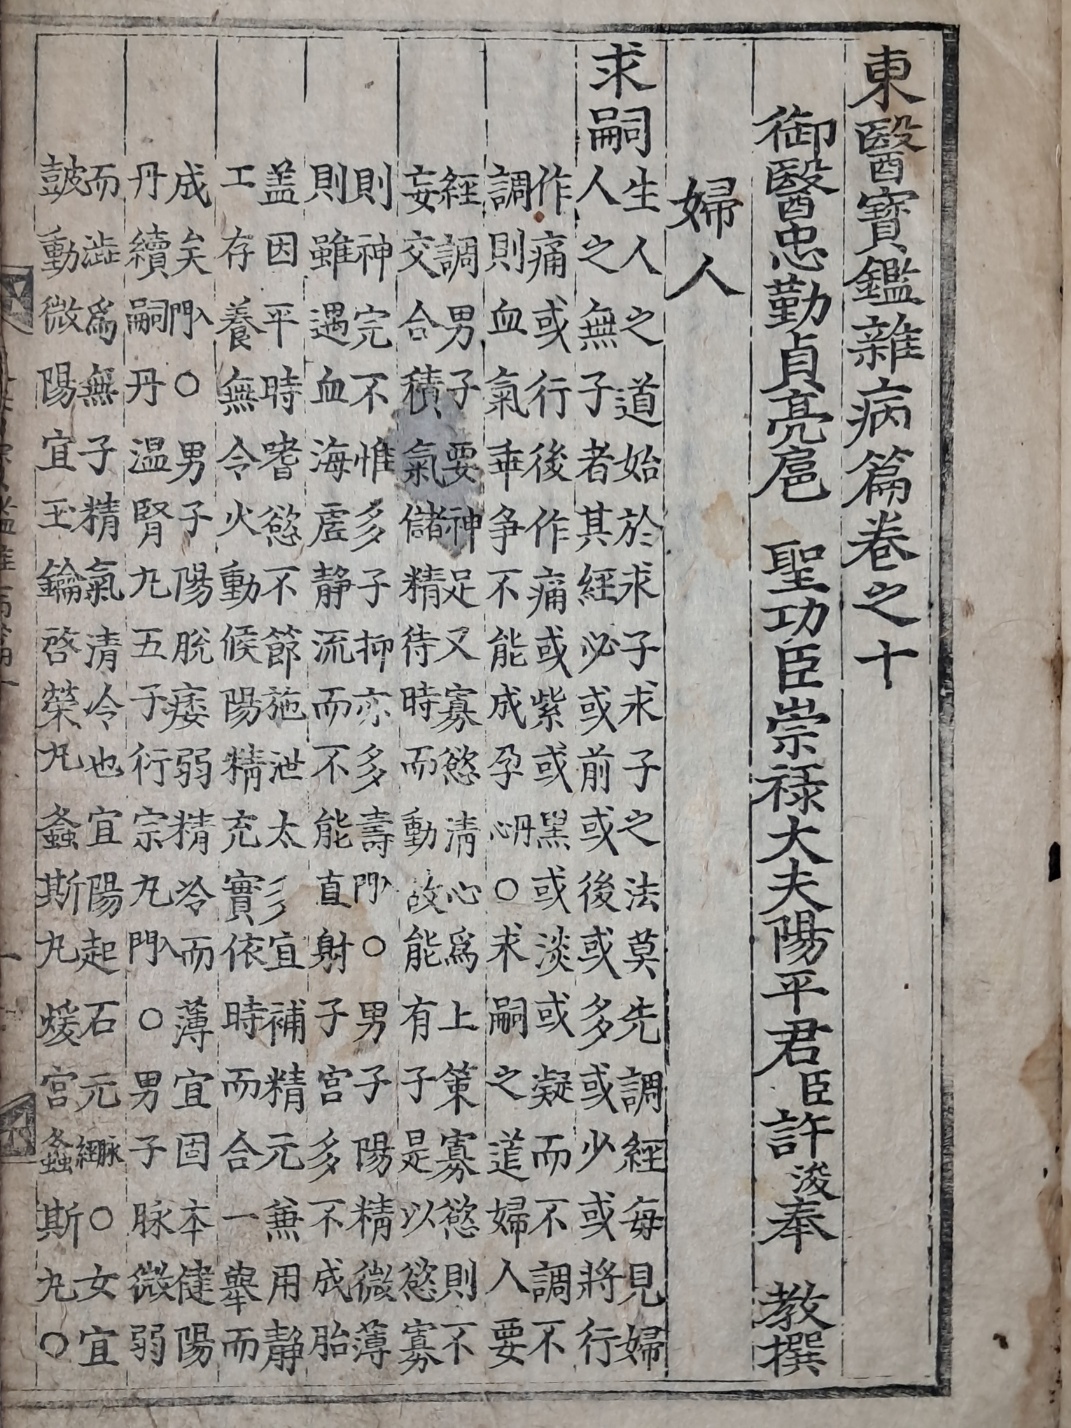 東醫寶鑑雜病篇卷之十
御醫忠勤貞亮扈 聖功臣崇祿大夫陽平君臣許浚奉 教撰
婦人
求嗣
生人之道始於求子求子之法莫先調經每見婦
人之無子者其經必或前或後或多或少或將行
作痛或行後作痛或紫或黑或淡或凝而不調不
調則血氣乖爭不能成孕丹心○求嗣之道婦人要
經調男子要神足又寡慾淸心爲上策寡慾則不
妄交合積氣儲精待時而動故能有子是以慾寡
則神完不惟多子抑亦多壽入門○男子陽精微薄
則雖遇血海虛靜流而不能直射子宮多不成胎
盖因平時嗜慾不節施泄太多宜補精元兼用靜
工存養無令火動候陽精充實依時而合一擧而
成矣入門○男子陽脫痿弱精冷而薄宜固本健陽
丹續嗣丹温腎丸五子衍宗丸入門○男子脉微弱
而澁爲無子精氣清冷也宜陽起石元脉經○女宜
鼓動微陽宜玉鑰啓榮丸螽斯丸煖宮螽斯丸○